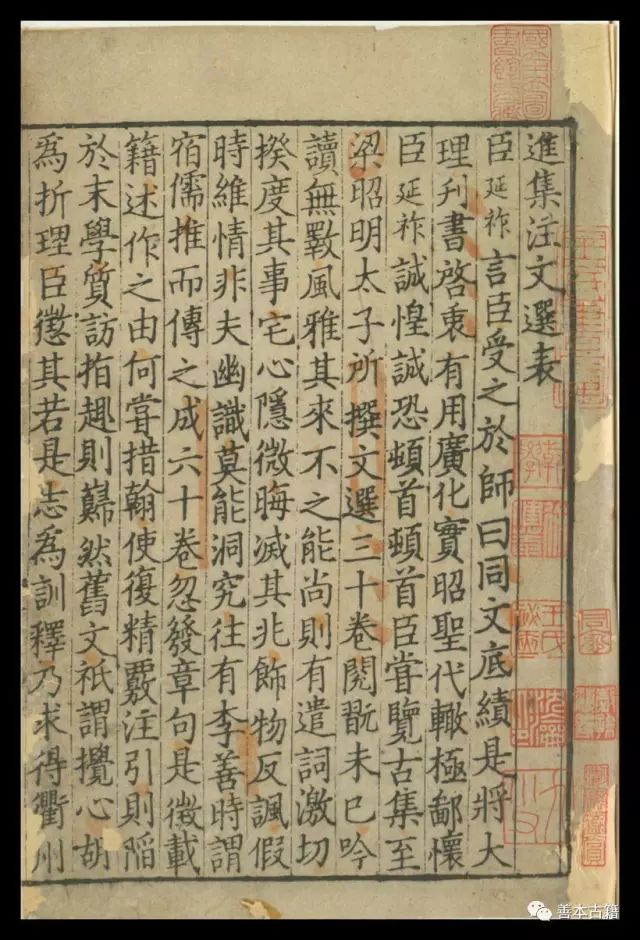 進集注文選表
臣延祚言臣受之於師曰同文底績是將大
理刋書啓衷有用廣化實昭聖代轍極鄙懷
臣延祚誠惶誠恐頓首頓首臣甞覽古集至
梁昭明太子所撰文選三十卷閱翫未已吟
讀無斁風雅其來不之能尚則有遣詞激切
揆度其事宅心隱微晦滅其兆飾物反諷假
時維情非夫幽識莫能洞究往有李善時謂
宿儒推而傳之成六十卷忽發章句是徵載
籍述作之由何甞措翰使復精覈注引則陷
於末學質訪指趣則巋然舊文祇謂攪心胡
為折理臣懲其若是志為訓釋乃求得衢州
善本古籍